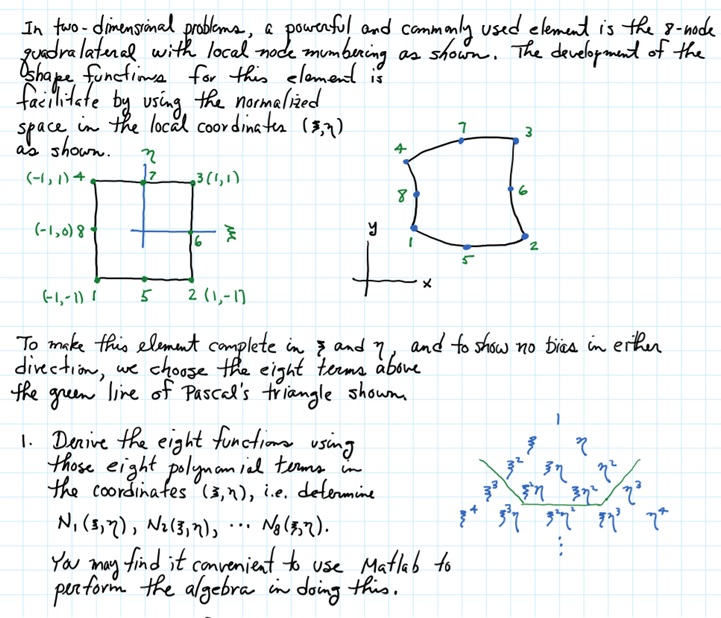 In two-dimensional problems, a powerful and commonly used element is the 8-node
quadralateral with local node numbering as shown. The development of the
shape functions for this element is
facilitate by using the normalized
space in the local coordinates (ξ,η)
as shown.
η
(-1, 1) 4
7
3 (1,1)
(-1,0) 8
6
ξ
(-1,-1) 1
5
2 (1,-1)
7
3
4
8
6
y
1
2
5
x
To make this element complete in ξ and η, and to show no bias in either
direction, we choose the eight terms above
the green line of Pascal's triangle shown.
1
ξ η
ξ² ξη η²
ξ³ ξ²η ξη² η³
ξ⁴ ξ³η ξ²η² ξη³ η⁴
⋮
1. Derive the eight functions using
those eight polynomial terms in
the coordinates (ξ,η), i.e. determine
N₁(ξ,η), N₂(ξ,η), ... N₈(ξ,η).
You may find it convenient to use Matlab to
perform the algebra in doing this.